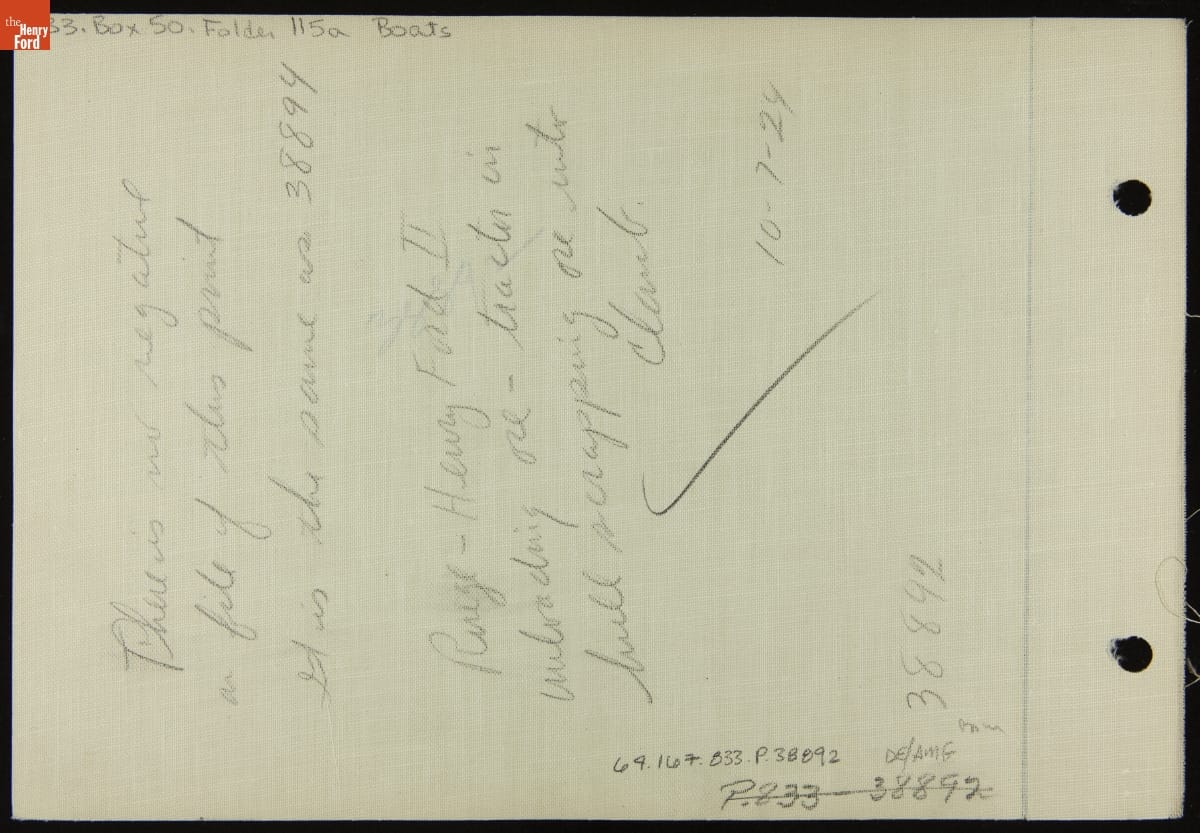 the
Henry
Ford
33. Box 50. Folder 115a Boats
There is no negative
on file of this print
It is the same as 38894
Rouge - Henry Ford II
unloading ore - tractor in
hull scrapping ore into
Clamb.
10-7-24
38892
64.167.833.P.38892
DE/AMG
P.833-38892